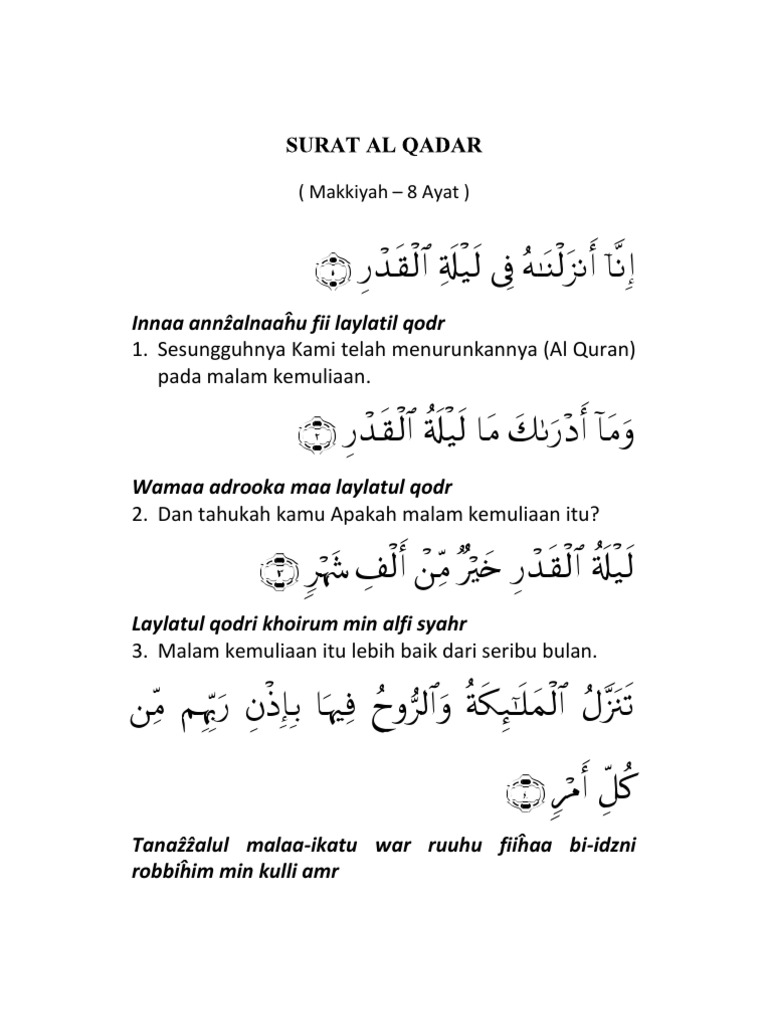 SURAT AL QADAR
( Makkiyah – 8 Ayat )
إِنَّآ أَنزَلْنَـٰهُ فِى لَيْلَةِ ٱلْقَدْرِ ١
Innaa annẑalnaaĥu fii laylatil qodr
1. Sesungguhnya Kami telah menurunkannya (Al Quran)
pada malam kemuliaan.
وَمَآ أَدْرَىٰكَ مَا لَيْلَةُ ٱلْقَدْرِ ٢
Wamaa adrooka maa laylatul qodr
2. Dan tahukah kamu Apakah malam kemuliaan itu?
لَيْلَةُ ٱلْقَدْرِ خَيْرٌ مِّنْ أَلْفِ شَهْرٍ ٣
Laylatul qodri khoirum min alfi syahr
3. Malam kemuliaan itu lebih baik dari seribu bulan.
تَنَزَّلُ ٱلْمَلَـٰٓئِكَةُ وَٱلرُّوحُ فِيهَا بِإِذْنِ رَبِّهِم مِّن
كُلِّ أَمْرٍ ٤
Tanaẑẑalul malaa-ikatu war ruuhu fiiĥaa bi-idzni
robbiĥim min kulli amr